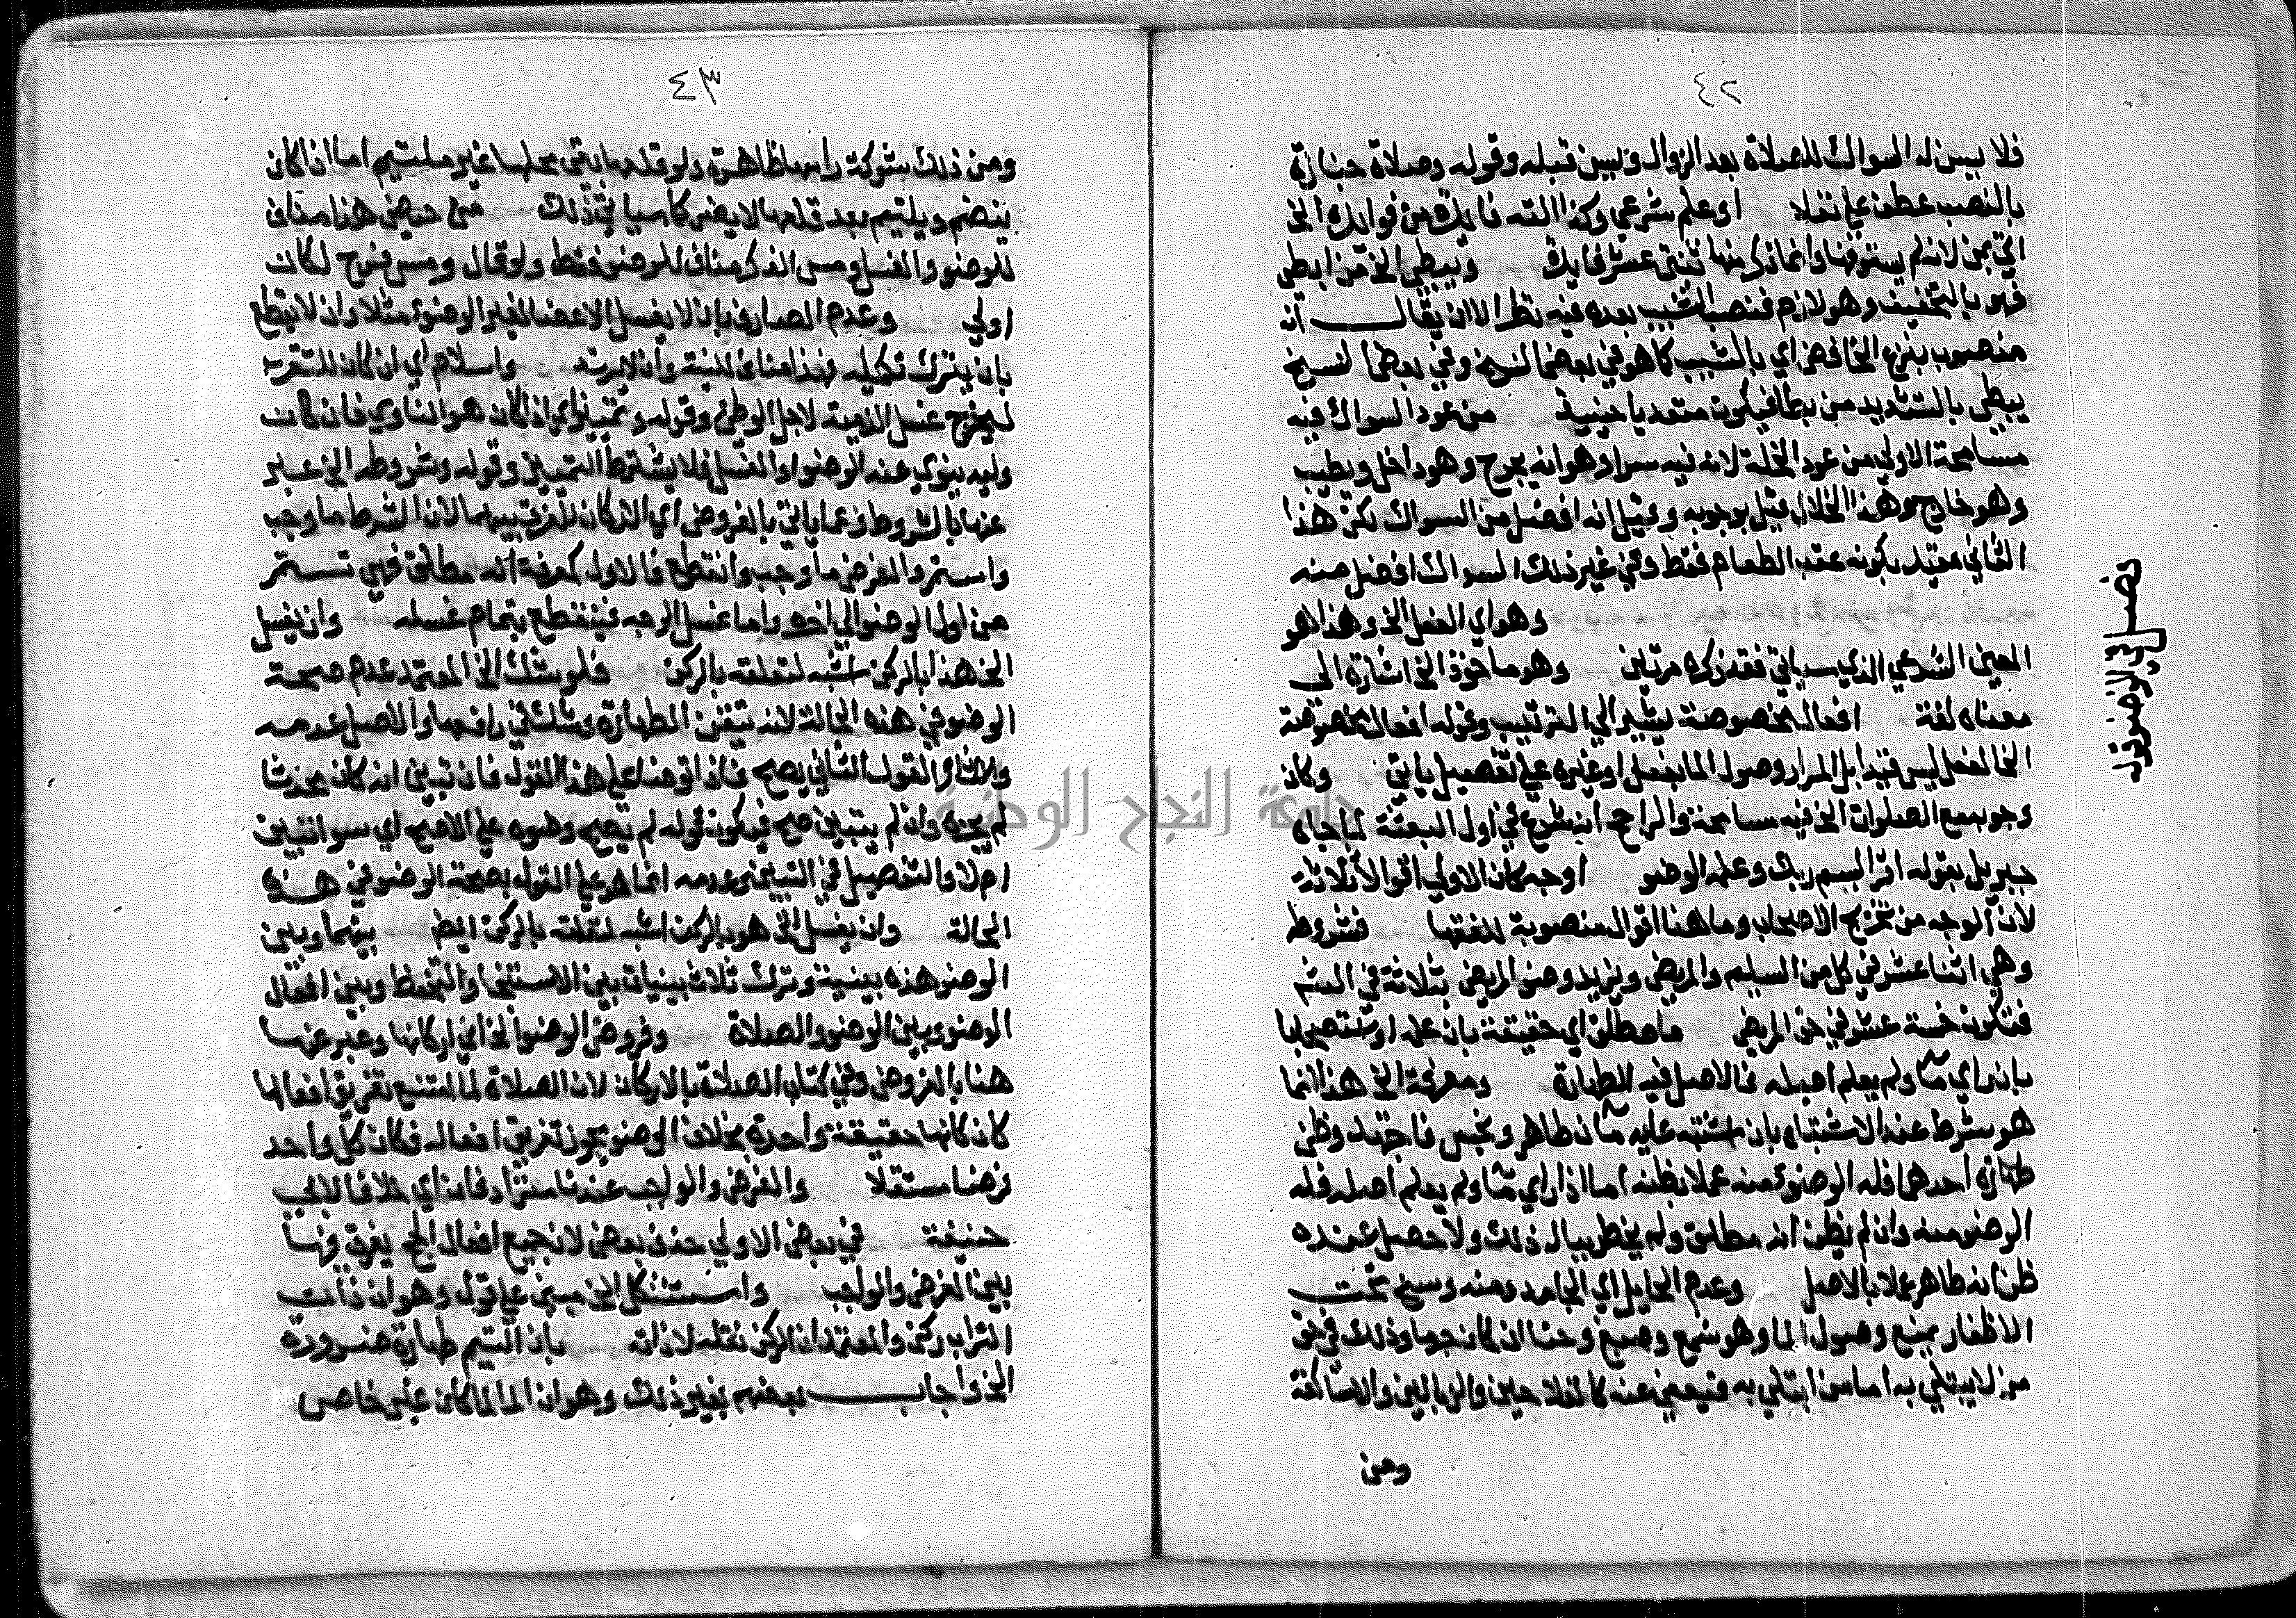 ٤٢
فلا يسن له السواك للصلاة بعد الزوال ويسن قبله وقوله وصلاة جنازة
بالنصب عطف على نفلا او علم شرعي وكذا الته فايدة من فوايده الخ
اتي بمن لانه لم يستوفها وانما ذكر منها ثنتي عشر فايدة ويبطي الخ من ابطى
فهو بالتخفيف وهو لازم فنصب الشيب بعده فيه نظر الا ان يقال انه
منصوب بنزع الخافض اي بالشيب كما هو في بعض النسخ وفي بعض النسخ
يبطي بالتشديد من بطا فيكون متعديا حينيذ من عود السواك فيه
مسامحة الاولى من عود الخلة لانه فيه سرا وهو انه يجرح وهو داخل ويطيب
وهو خارج وهذا الخلال قيل بوجوبه وقيل انه افضل من السواك لكن هذا
الثاني مقيد بكونه عقب الطعام فقط وفي غير ذلك السواك افضل منه
وهو اي الفعل الخ وهذا هو
المعنى الشرعي الذي سياتي فقد ذكره مرتين وهو ماخوذ الخ اشارة الى
معناه لغة افعال مخصوصة يشير الى الترتيب وقوله افعال مخصوصة
الخ الفعل ليس قيدا بل المراد وصول الما بفعل او غيره على تفصيل ياتي وكان
وجوبه مع الصلوات الخ فيه مسامحة والراجح انه شرع في اول البعثة لما جاه
جبريل بقوله اقرا باسم ربك وعلمه الوضو اوجه كان الاولى اقوالا ثلاثة
لان الوجه من تخريج الاصحاب وما هنا اقوال منصوبة للفقها فشروطه
وهي اثنا عشر في كل من السليم والمريض ويزيد وضو المريض بثلاثة في المتيمم
فتكون خمسة عشر في حق المريض ما مطلق اي حقيقة بان علمه او استصحابا
بان راي ما ولم يعلم اصله فالاصل فيه الطهارة ومعرفة الخ هذا انما
هو شرط عند الاشتباه بان اشتبه عليه ما ان طاهر ونجس فاجتهد وظن
طهارة احدهما فله الوضوء منه عملا بظنه اما اذا راي ما ولم يعلم اصله فله
الوضو منه وان لم يظن انه مطلق ولم يخطر ببال ذلك ولا حصل عنده
ظن انه طاهر عملا بالاصل وعدم الحايل اي الجامد ومنه وسخ تحت
الاظفار يمنع وصول الما وهو شمع وصمغ وحنا ان كان جرما وذلك في حق
من لا يبتلي به اما من ابتلي به فيعفى عنه كالفلاحين والزبالين والاساكفة
ومن
فصل في الوضو قوله
٤٣
ومن ذلك شوكة راسها ظاهرة ولو قلعها بقي محلها غير ملتيم اما ان كان
ينضم ويلتيم بعد قلعها لا يضر كما سياتي ذلك من حيض هذا مناف
للوضو والغسل ومس الذكر مناف للوضو فقط ولو قال ومس فرج لكان
اولى وعدم الصارف بان لا يغسل الاعضا لغير الوضوء مثلا وان لا يقطع
بان يترك تكميله فهذا مناف للنية وان لا يرتد واسلام اي ان كان للتقرب
ليخرج غسل الذمية لاجل الوطئ وقوله وتمييز اي اذا كان هو الناوي فان كان
وليه ينوي عنه الوضو او الغسل فلا يشترط التمييز وقوله وشروطه الخ عبر
عنها بالشروط وعما ياتي بالفروض اي الاركان للفرق بينهما لان الشرط ما وجب
واستمر والفرض ما وجب وانقطع فالاول كمعرفة انه مطلق فهي تستمر
من اول الوضو الى اخره واما غسل الوجه فينقطع بتمام غسله وان يغسل
الخ هذا بالركن اشبه لتعلقه بالركن فلو شك الخ المعتمد عدم صحة
الوضو في هذه الحالة لانه تيقن الطهارة وشك في رافعها والاصل عدمه
والقول الثاني يصح فاذا توضا على هذا القول فان تبين انه كان محدثا
لم يجزه وان لم يتبين صح فيكون قوله لم يصح وضوه على الاصح اي سوا تبين
ام لا والتفصيل في التبين وعدمه انما هو على القول بصحة الوضو في هذه
الحالة وان يغسل الخ هو بالركن اشبه لتعلقه بالركن ايضا بينهما وبين
الوضو هذه بينية وترك ثلاث بينيات بين الاستنجا والتحفظ وبين افعال
الوضو وبين الوضو والصلاة وفروض الوضو الخ اي اركانها وعبر عنها
هنا بالفروض وفي كتاب الصلاة بالاركان لان الصلاة لما امتنع تفريق افعالها
كان كانها حقيقة واحدة بخلاف الوضو يجوز تفريق افعاله فكان كل واحد
فرضا مستقلا والفرض والواجب عندنا مترادفان اي خلافا لابي
حنيفة في بعض الاولى حذف بعض لان جميع افعال الحج يفرق فيها
بين الفرض والواجب واستشكل الخ مبني على قول وهو ان ذات
التراب ركن والمعتمد ان الركن نقله لا ذاته بان التيمم طهارة ضرورة
الخ واجاب بعضهم بغير ذلك وهو ان الما لما كان غير خاص
جامعة النجاح الوطنية